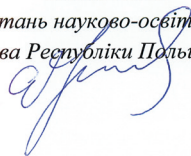 тань науково-освіт
ва Республіки Поль